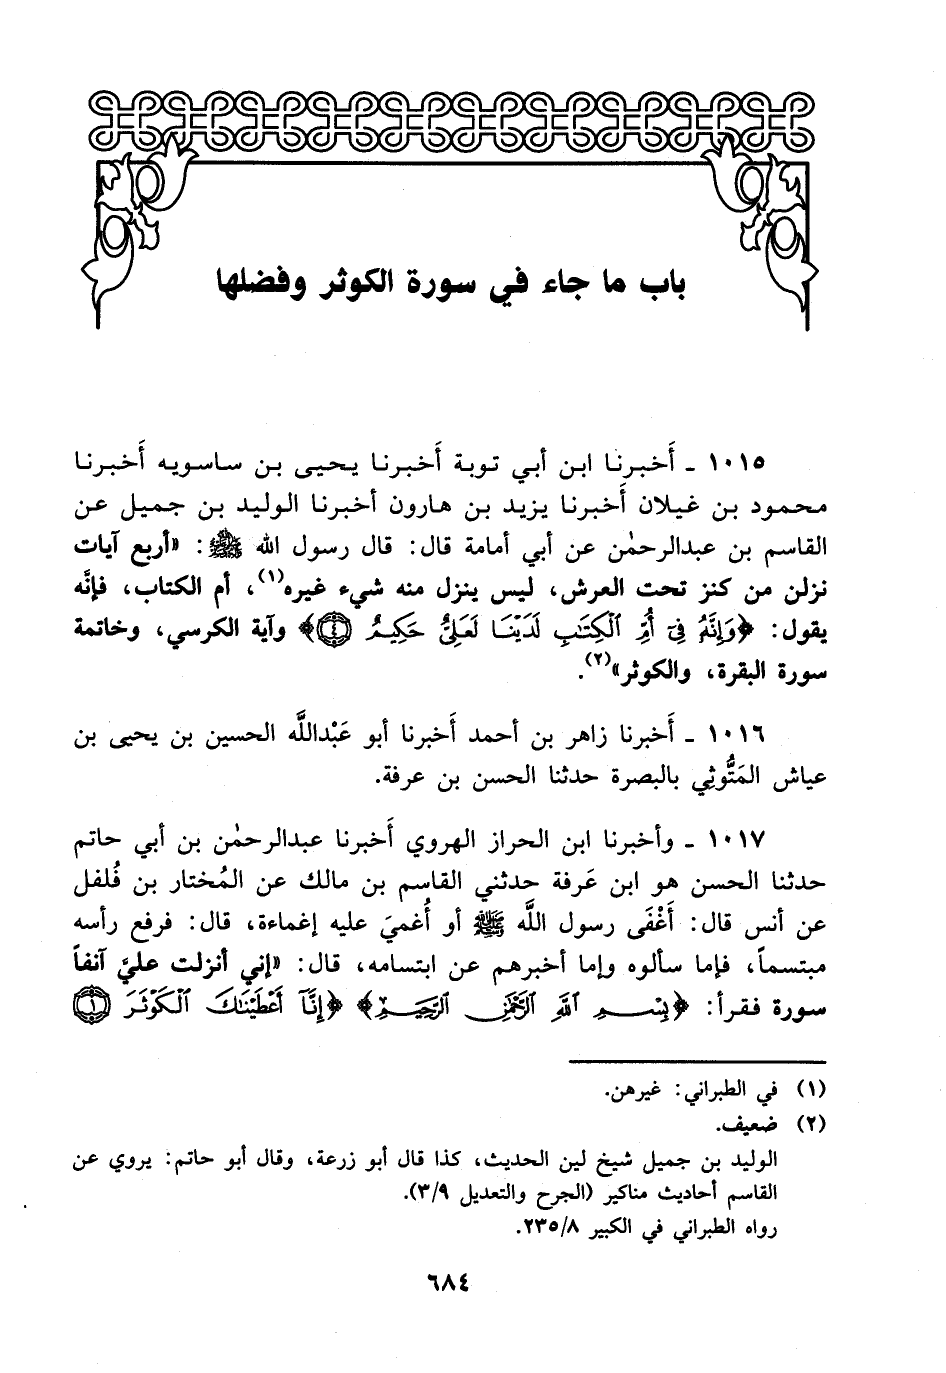 باب ما جاء في سورة الكوثر وفضلها
١٠١٥ ـ أَخبرنا ابن أبي توبة أَخبرنا يحيى بن ساسويه أَخبرنا
محمود بن غيلان أَخبرنا يزيد بن هارون أخبرنا الوليد بن جميل عن
القاسم بن عبدالرحمٰن عن أبي أمامة قال: قال رسول الله ﷺ: «أربع آيات
نزلن من كنز تحت العرش، ليس ينزل منه شيء غيره(١)، أم الكتاب، فإنَّه
يقول: ﴿وَإِنَّهُ فِىٓ أُمِّ ٱلْكِتَٰبِ لَدَيْنَا لَعَلِىٌّ حَكِيمٌ ٤﴾ وآية الكرسي، وخاتمة
سورة البقرة، والكوثر»(٢).
١٠١٦ ـ أَخبرنا زاهر بن أحمد أَخبرنا أبو عَبْداللَّه الحسين بن يحيى بن
عياش المَتُّوثِي بالبصرة حدثنا الحسن بن عرفة.
١٠١٧ ـ وأخبرنا ابن الحراز الهروي أَخبرنا عبدالرحمٰن بن أبي حاتم
حدثنا الحسن هو ابن عَرفة حدثني القاسم بن مالك عن المُختار بن فُلفل
عن أنس قال: أَغْفَى رسول اللَّه ﷺ أو أُغميَ عليه إغماءة، قال: فرفع رأسه
مبتسماً، فإما سألوه وإما أخبرهم عن ابتسامه، قال: «إني أنزلت عليَّ آنفاً
سورة فقرأ: ﴿بِسْمِ ٱللَّهِ ٱلرَّحْمَٰنِ ٱلرَّحِيمِ﴾ ﴿إِنَّآ أَعْطَيْنَٰكَ ٱلْكَوْثَرَ ١
(١) في الطبراني: غيرهن.
(٢) ضعيف.
الوليد بن جميل شيخ لين الحديث، كذا قال أبو زرعة، وقال أبو حاتم: يروي عن
القاسم أحاديث مناكير (الجرح والتعديل ٣/٩).
رواه الطبراني في الكبير ٢٣٥/٨.
٦٨٤